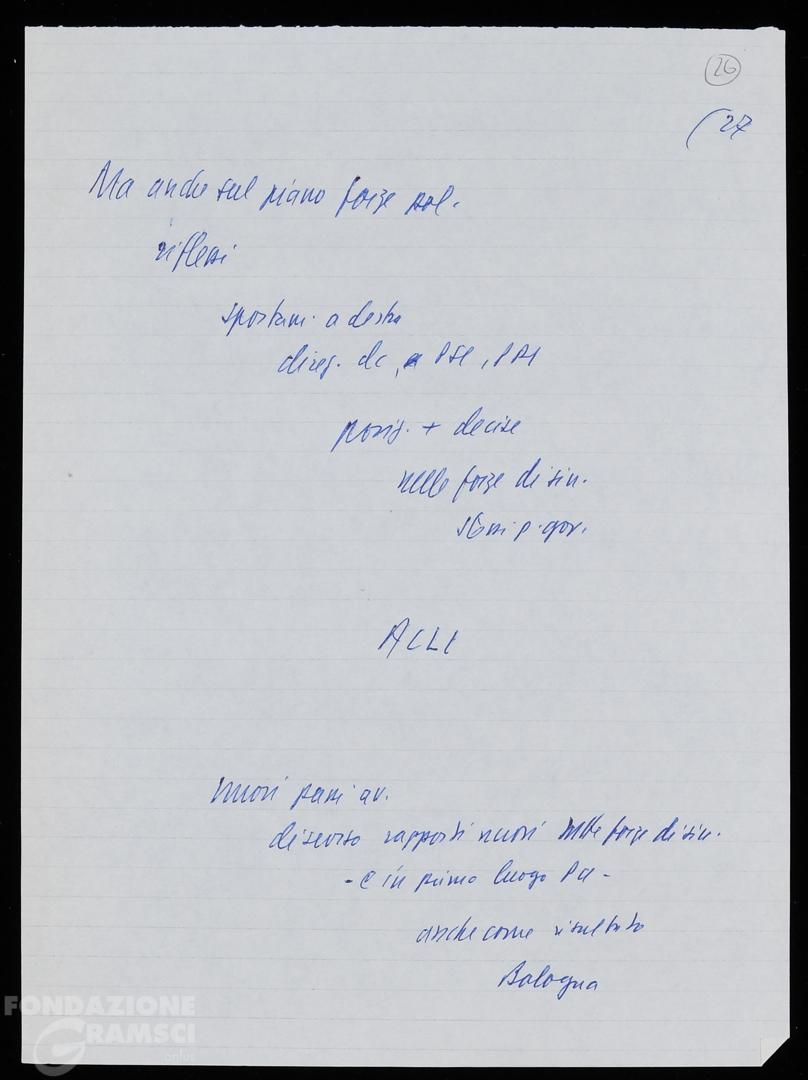 26
(27
Ma anche sul piano forze pol.
riflessi
spostam. a destra
direz. dc, PSI, PRI
posiz. + decise
nelle forze di sin.
p. gov.
ACLI
nuovi passi av.
discorso rapporti nuovi nelle forze di sin.
- e in primo luogo PCI -
anche come risultato
Bologna
FONDAZIONE
GRAMSCI
onlus